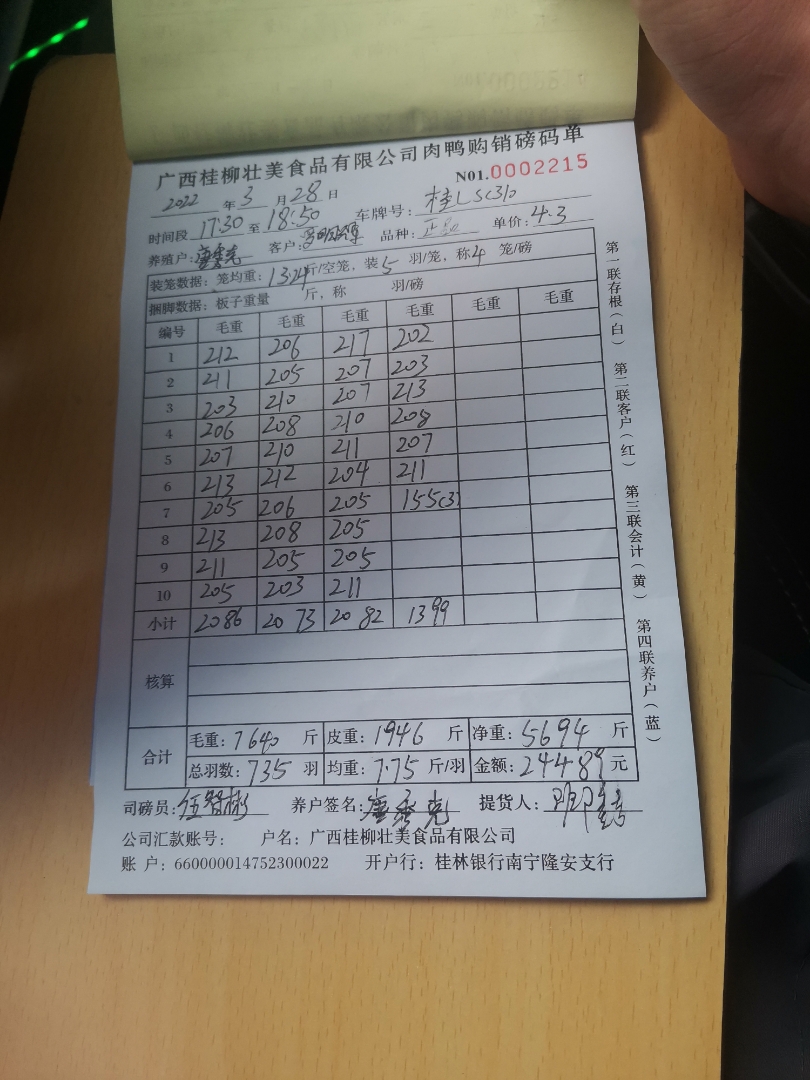 广西桂柳壮美食品有限公司肉鸭购销磅码单
N01.0002215
2022 年 3 月 28 日
时间段 17:30 至 18:50 车牌号: 桂L5C310
养殖户: 客户: 品种: 正品 单价: 4.3
装笼数据: 笼均重: 13.24 斤/空笼, 装 5 羽/笼, 称 4 笼/磅
捆脚数据: 板子重量 斤, 称 羽/磅
编号 毛重 毛重 毛重 毛重 毛重 毛重
1 212 206 217 202
2 211 205 207 203
3 203 210 207 213
4 206 208 210 208
5 207 210 211 207
6 213 212 204 211
7 205 206 205 155(3)
8 213 208 205
9 211 205 205
10 205 203 211
小计 2086 2073 2082 1399
核算
合计 毛重: 7640 斤 皮重: 1946 斤 净重: 5694 斤
总羽数: 735 羽 均重: 7.75 斤/羽 金额: 24489 元
司磅员: 伍智彬 养户签名: 提货人:
公司汇款账号: 户名: 广西桂柳壮美食品有限公司
账 户: 660000014752300022 开户行: 桂林银行南宁隆安支行
第一联存根(白) 第二联客户(红) 第三联会计(黄) 第四联养户(蓝)